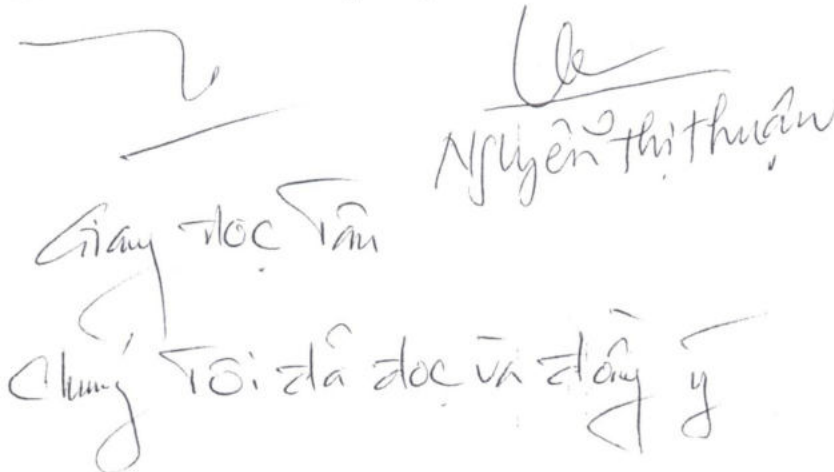 Nguyễn thị thuận
Giang đọc Tân
Chúng Tôi đã đọc và đồng ý